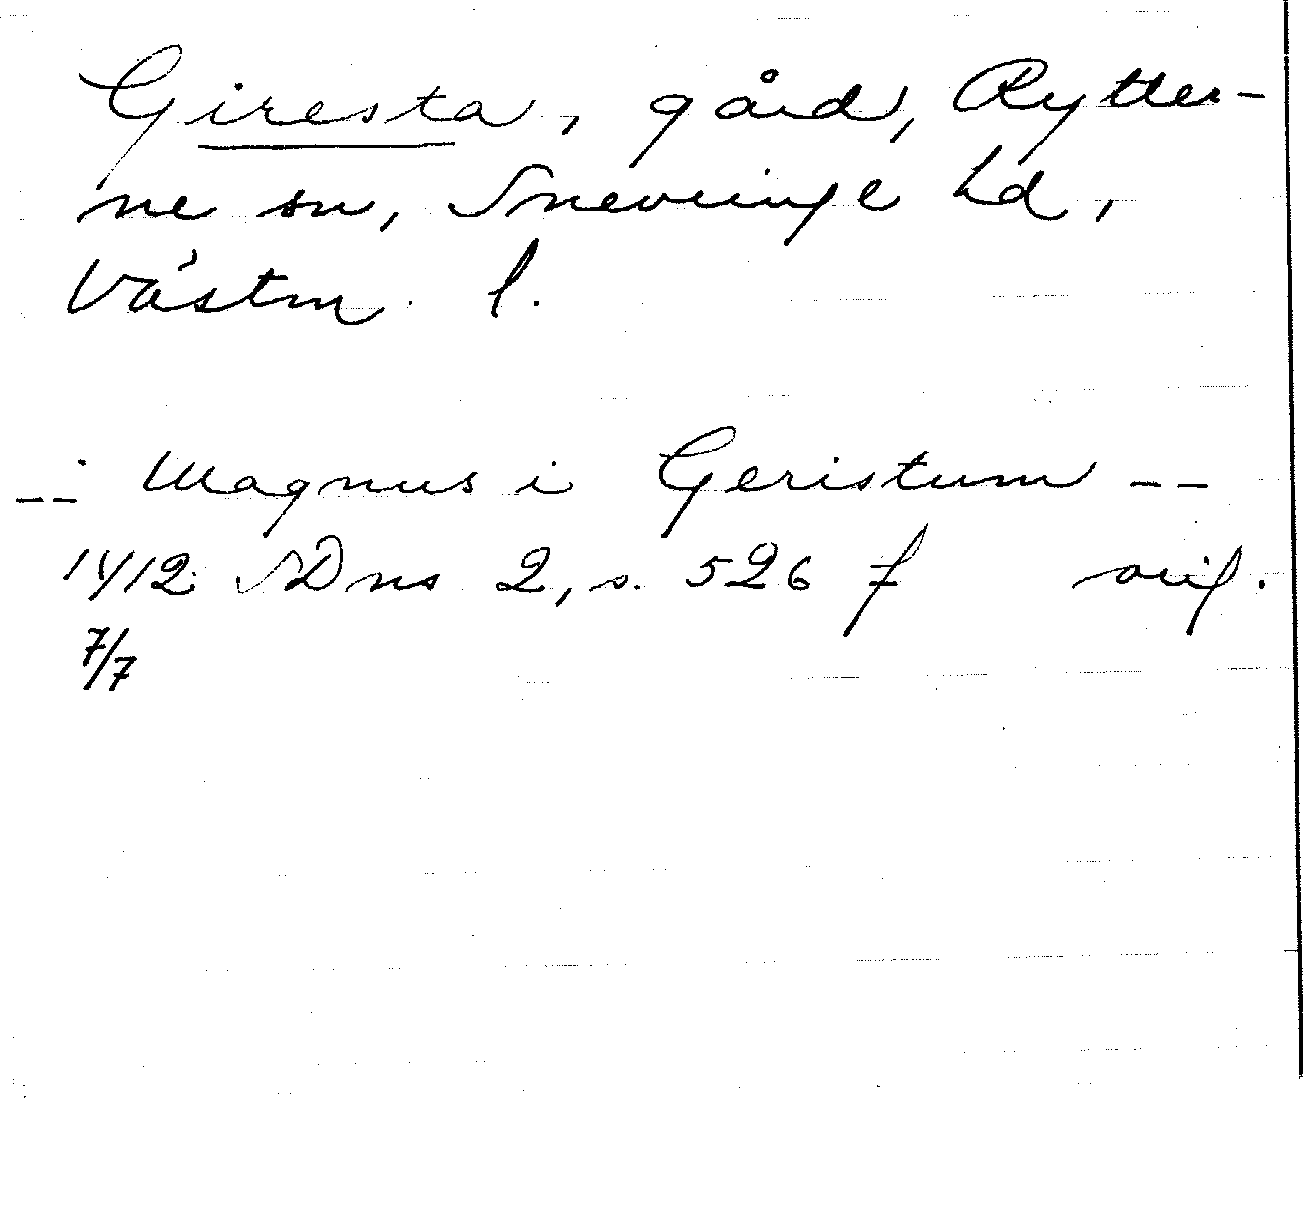 Giresta, gård, Rytter-
ne sn, Snevringe hd,
Västm. l.
-- Magnus i Geristum --
1412 SDns 2, s. 526 f orig.
7/7